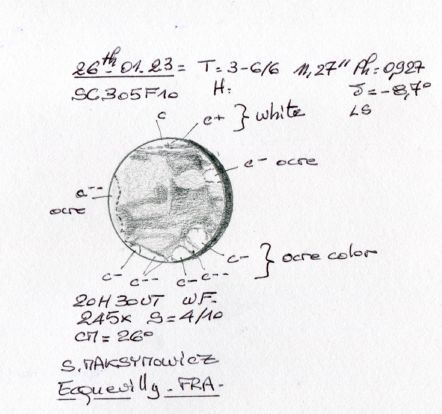 26th.01.23 = T= 3-6/6 11,27" Ph: 0,927
SC305F10 H: δ= -8,7°
LS
c
c+ } white
c- ocre
c--
ocre
c- c-- c- c-- c- } ocre color
20H30UT WF.
245x S=4/10
CM = 26°
S. MAKSYMOWICZ
Ecquevilly. FRA.